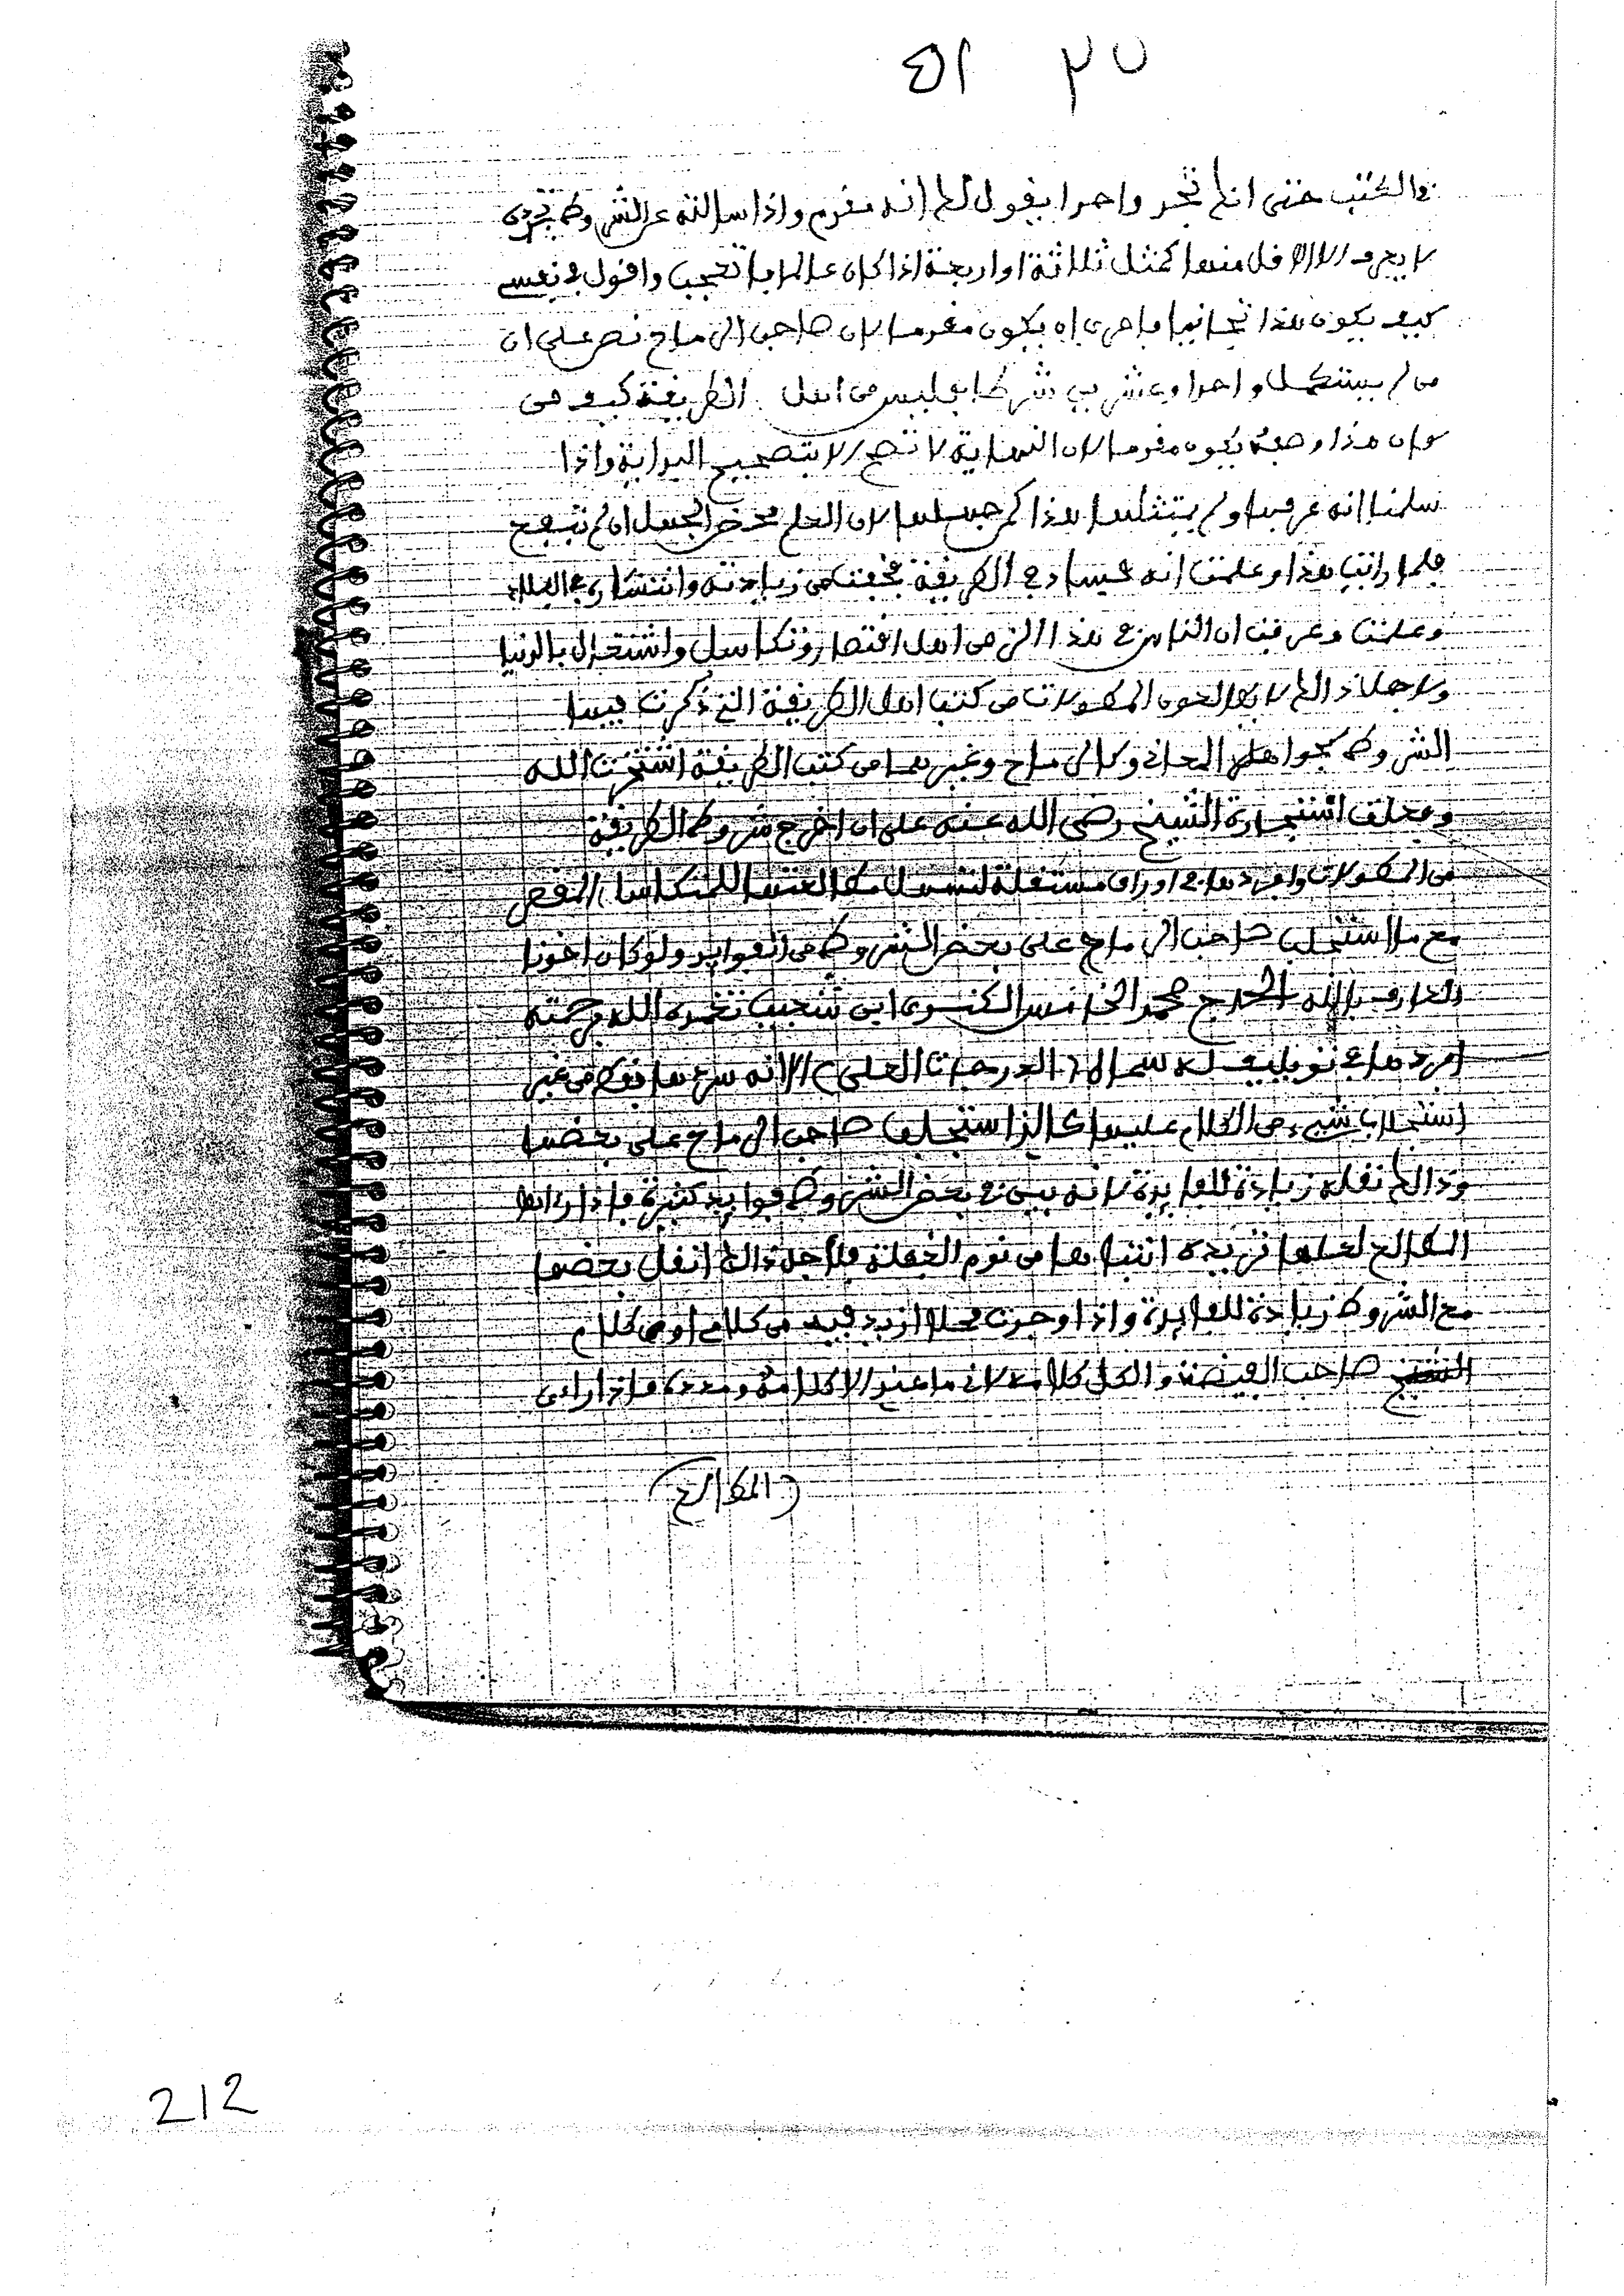 في الكتب حتى انك تجد واحدا يقول لك انه مقدم واذا سالته عن الشروط تجده
لا يعرف الا الاقل منها كمثل ثلاثة او اربعة اذا كان عالما فاتعجب واقول في نفسي
كيف يكون هذا تجانيا فاحرى ان يكون مقدما لان صاحب الرماح نص على ان
من لم يستكمل واحدا وعشرين شرطا فليس من اهل الطريقة كيف من
كان هذا وصفه يكون مقدما لان النهاية لا تصح الا بتصحيح البداية واذا
سلمنا انه عرفها ولم يمتثلها هذا كمن جهلها لان العلم محض الجهل ان لم ينفع
فلما رايت هذا وعلمت انه فساد في الطريقة فخفت من زيادته وانتشاره في البلاد
وعلمت وعرفت ان الناس في هذا الزمن اهل اقتصار وتكاسل واشتغال بالدنيا
ولاجل ذالك لا يطالعون المطولات من كتب اهل الطريقة التي ذكرت فيها
الشروط كجواهر المعاني وكالرماح وغيرهما من كتب الطريقة استخرت الله
استخارة الشيخ رضي الله عنه على ان اخرج شروط الطريقة
من المطولات وافردها في اوراق مستقلة لتسهل مطالعتها للمتكاسل المقصر
مع ما استجلب صاحب الرماح على بعض الشروط من الفوائد ولو كان اخونا
العارف بالله الحاج محمد الخامس الكنسوى ابن شعيب تغمده الله برحمته
افردها في تويليف له سماه (الدرجات العلى) الا انه سردها فقط من غير
استجلاب شيء من الكلام عليها كالذي استجلبه صاحب الرماح على بعضها
وذالك نقله زيادة للفايدة لانه بين في بعض الشروط فوايد كثيرة فاذا راها
المطالع لعلها تزيده انتباها من نوم الغفلة فلاجل ذالك انقل بعضها
مع الشروط زيادة للفايدة واذا وجدت محلا ازيد فيه من كلامي او من كلام
الشيخ صاحب الفيضة والكل كلامه لاني ما عندي الا كلامه ومدده فاذا راى
(المطالع)
212